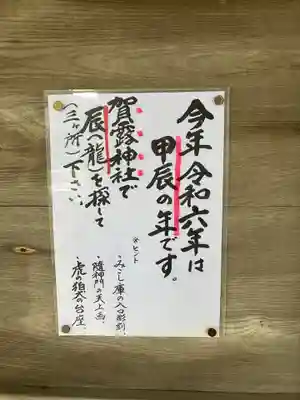 今年令和六年は
甲辰の年です。
賀露神社で
辰(龍)を探して
(三ヶ所)下さい。
※ヒント
・みこし庫の入口彫刻、
・随神門の天上画、
・虎の狛犬の台座、